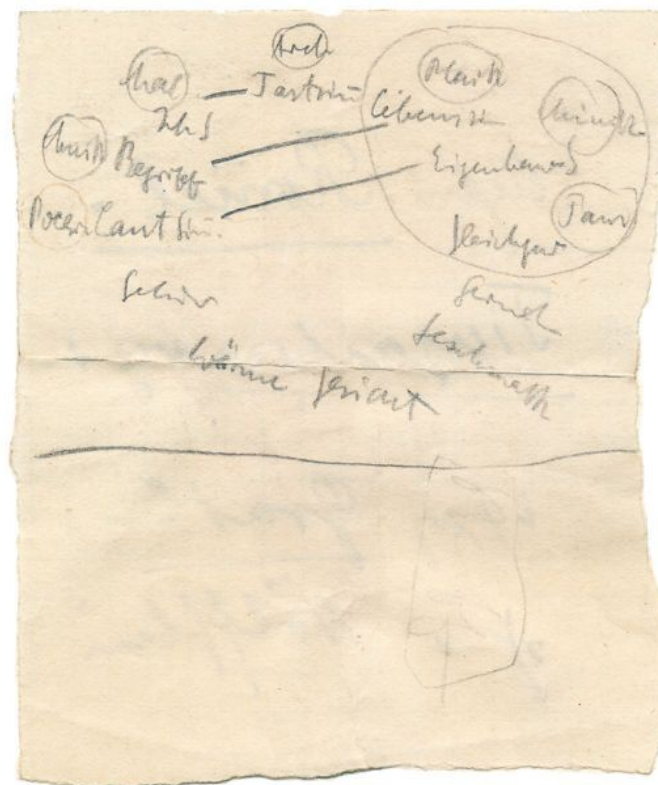 Arch
Mal Tastsin Plastik
Ich S Lebenssi Mimik
Musik Begriff Eigenbew S
Poesie Lautsin. Tanz
Gleichgew
Gehör Geruch
Geschmack
Wärme Gesicht